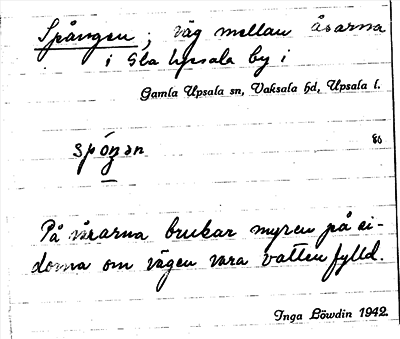 Spången, väg mellan åsarna
i Gla Upsala by i
Gamla Upsala sn, Vaksala hd, Upsala l.
spóŋən
På vårarna brukar myren på si-
dorna om vägen vara vattenfylld.
Inga Löwdin 1942.